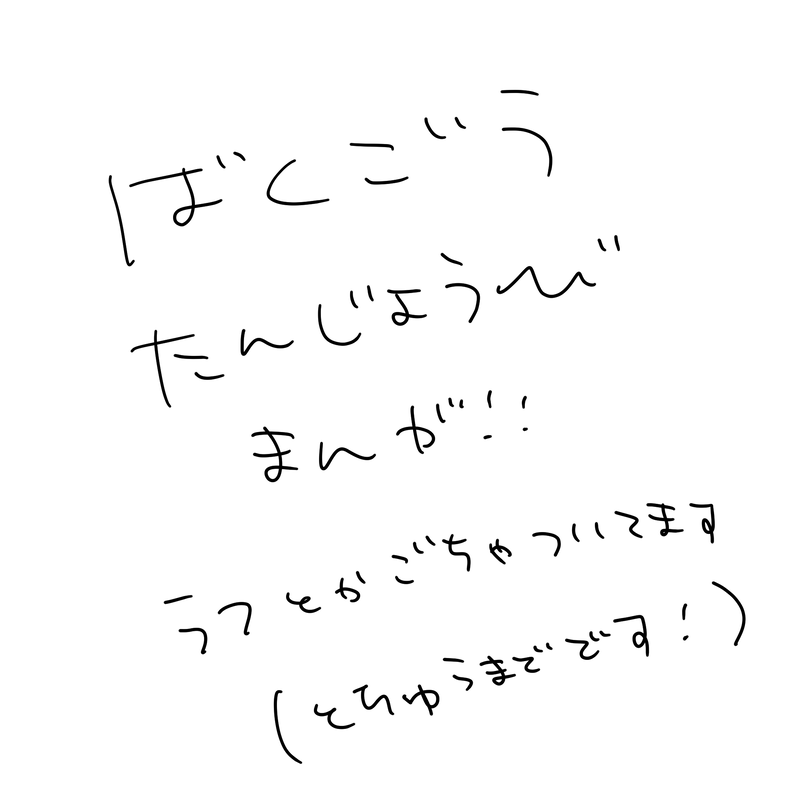 ばくごう
たんじょうび
まんが!!
ラフとかごちゃついてます
(とちゅうまでです!)